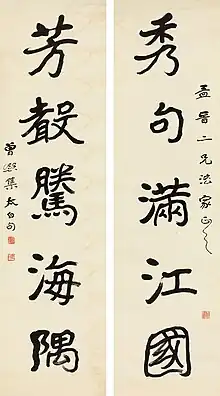 孟晋二兄法家正
秀句滿江國
芳聲騰海隅
曾熙集太白句